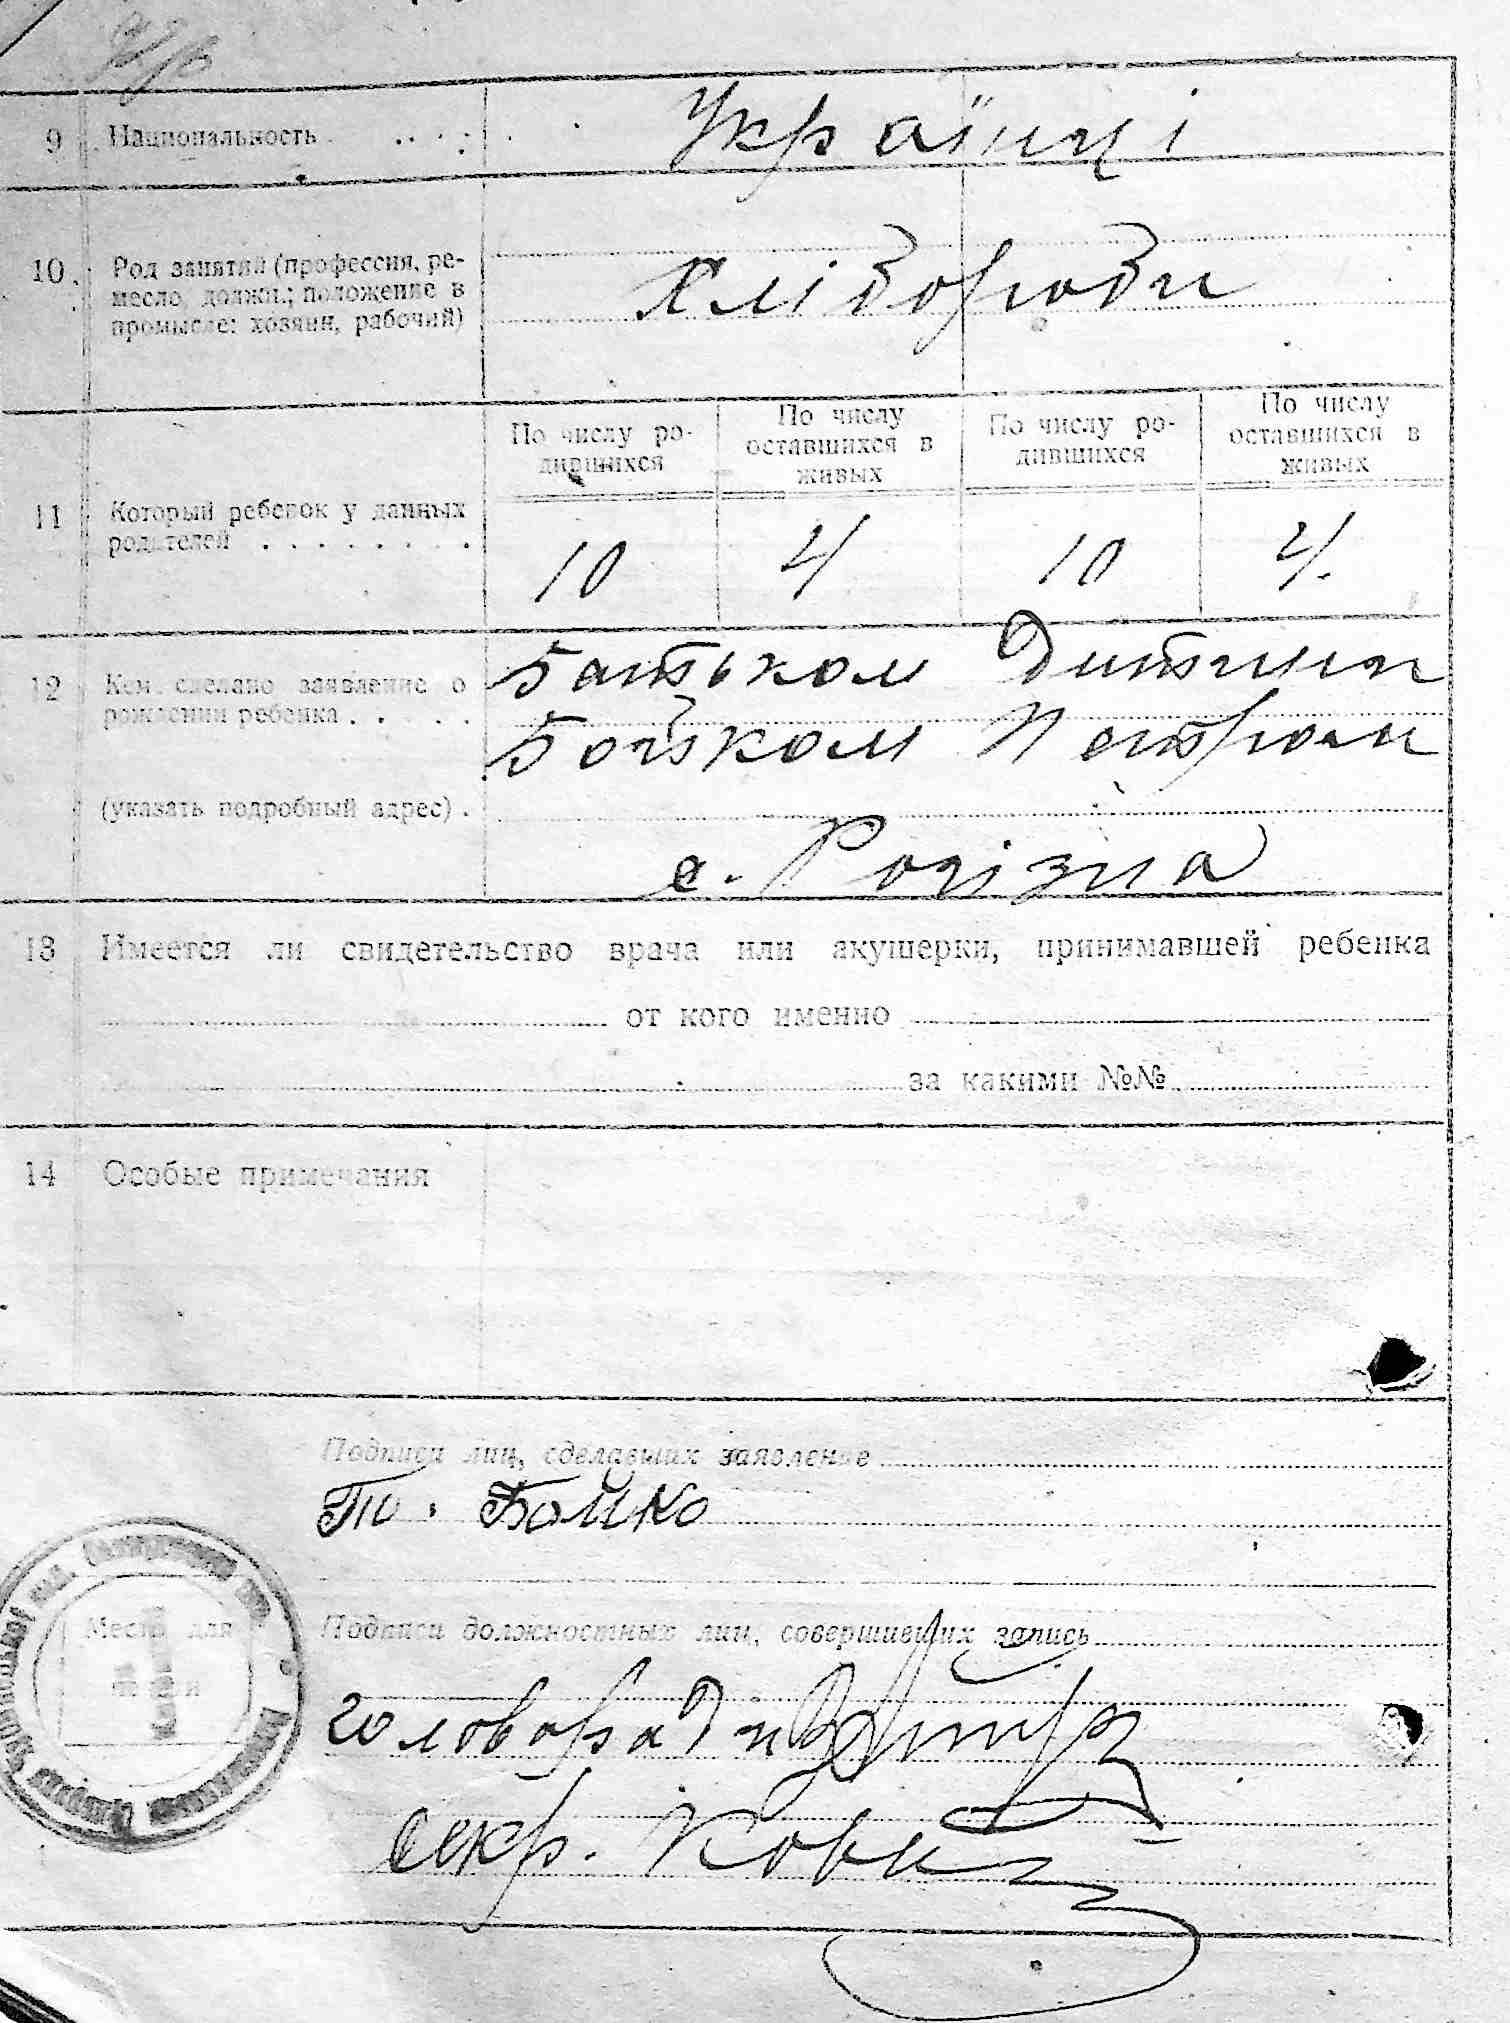 9 Национальность Українці
10. Род занятий (профессия, ре-
месло, должн.; положение в
промысле: хозяин, рабочий)
Хлібороби
По числу ро-
дившихся
По числу
оставшихся в
живых
По числу ро-
дившихся
По числу
оставшихся в
живых
11 Который ребенок у данных
родителей . . . . . . . .
10 4 10 4.
12 Кем сделано заявление о
рождении ребенка . . . . .
Батьком дитини
Бойком Петром
(указать подробный адрес) .
с. Розізна
13 Имеется ли свидетельство врача или акушерки, принимавшей ребенка
от кого именно
за какими №№
14 Особые примечания
Подписи лиц, сделавших заявление
П. Бойко
Место для
печати
Подписи должностных лиц, совершивших запись
голова ради
секр.